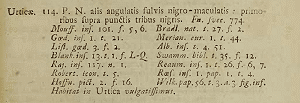 Urticæ. 114. P. N. alis angulatis fulvis nigro-maculatis: primo-
ribus supra punctis tribus nigris. Fn. svec. 774.
Mouff. inf. 101. f. 5, 6. Bradl. nat. t. 27. f. 2.
Gœd. inf. 1. t. 21. Merian. eur. 1. t. 44.
List. gœd. 3. f. 2. Alb. inf. 4. f. 51.
Blank. inf. 13. t. 1. f. L-Q Swamm. bibl. t. 35. f. 12.
Raj. inf. 117. n. 1. Reaum. inf. 1. t. 26. f. 6, 7.
Robert. icon. t. 5. Rœs. inf. 1. pap. 1. t. 4.
Hoffn. pict. 2. f. 16. Wilk. pap. 56. t. 3. a. 3. fig. inf.
Habitat in Urtica vulgatissimus.